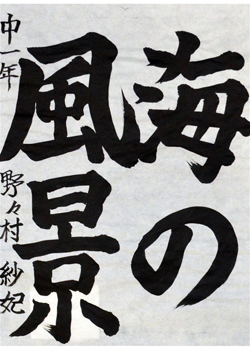 海の
風景
中一年 野々村 紗妃